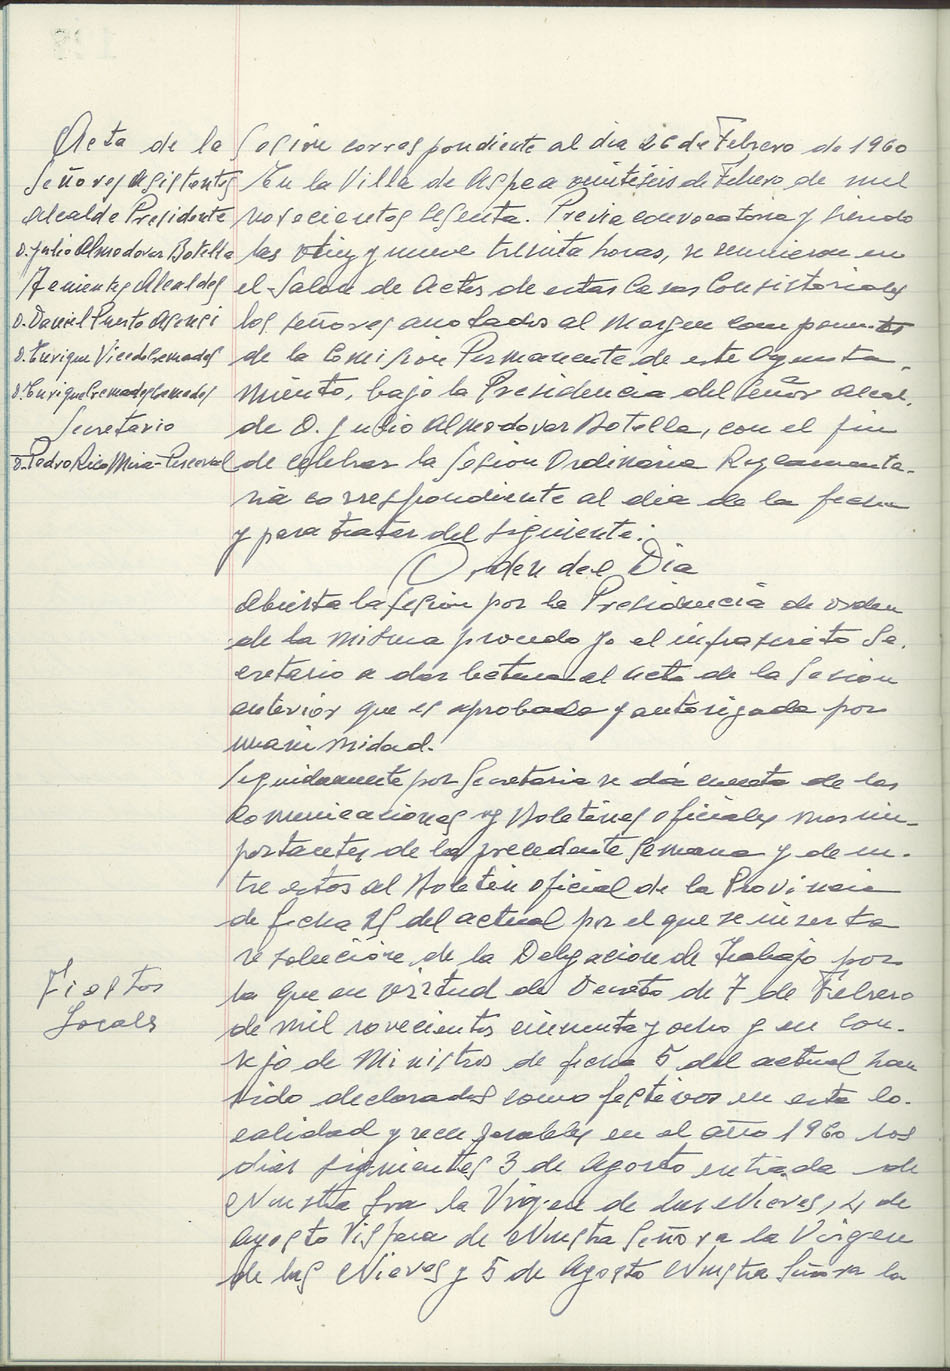 Acta de la Sesión correspondiente al dia 26 de Febrero de 1960
Señores Asistentes
Alcalde Presidente
D. Julio Almodovar Botella
Tenientes Alcaldes
D. Daniel Puerto Asensi
D. Enrique Vicedo Cremades
D. Enrique Cremades Cremades
Secretario
D. Pedro Rico Mira-Perceval
En la Villa de Aspe a veintiseis de Febrero de mil
novecientos sesenta. Previa convocatoria y siendo
las diez y nueve treinta horas, se reunieron en
el Salon de Actos de estas Casas Consistoriales
los señores anotados al margen componentes
de la Comisión Permanente de este Ayunta-
miento, bajo la Presidencia del Señor Alcal-
de D. Julio Almodovar Botella, con el fin
de celebrar la Sesion Ordinaria Reglamenta-
ria correspondiente al dia de la fecha
y para tratar del siguiente:
Orden del Dia
Abierta la sesión por la Presidencia de orden
de la misma procedo yo el infrascrito Se-
cretario a dar lectura al acta de la Sesion
anterior que es aprobada y autorizada por
unanimidad.
Seguidamente por Secretaria se dá cuenta de las
Comunicaciones y Boletines oficiales mas im-
portantes de la precedente semana y de en-
tre estos al Boletin oficial de la Provincia
de fecha 25 del actual por el que se inserta
resolución de la Delegacion de Trabajo por
la que en virtud de Decreto de 7 de Febrero
de mil novecientos cincuenta y ocho y en Con-
sejo de Ministros de fecha 5 del actual han
sido declarados como festivos en esta lo-
calidad y recuperables en el año 1960 los
dias siguientes 3 de Agosto entrada de
Nuestra Sra la Virgen de las Nieves, 4 de
Agosto Vispera de Nuestra Señora la Virgen
de las Nieves y 5 de Agosto Nuestra Señora la
Fiestas
Locales